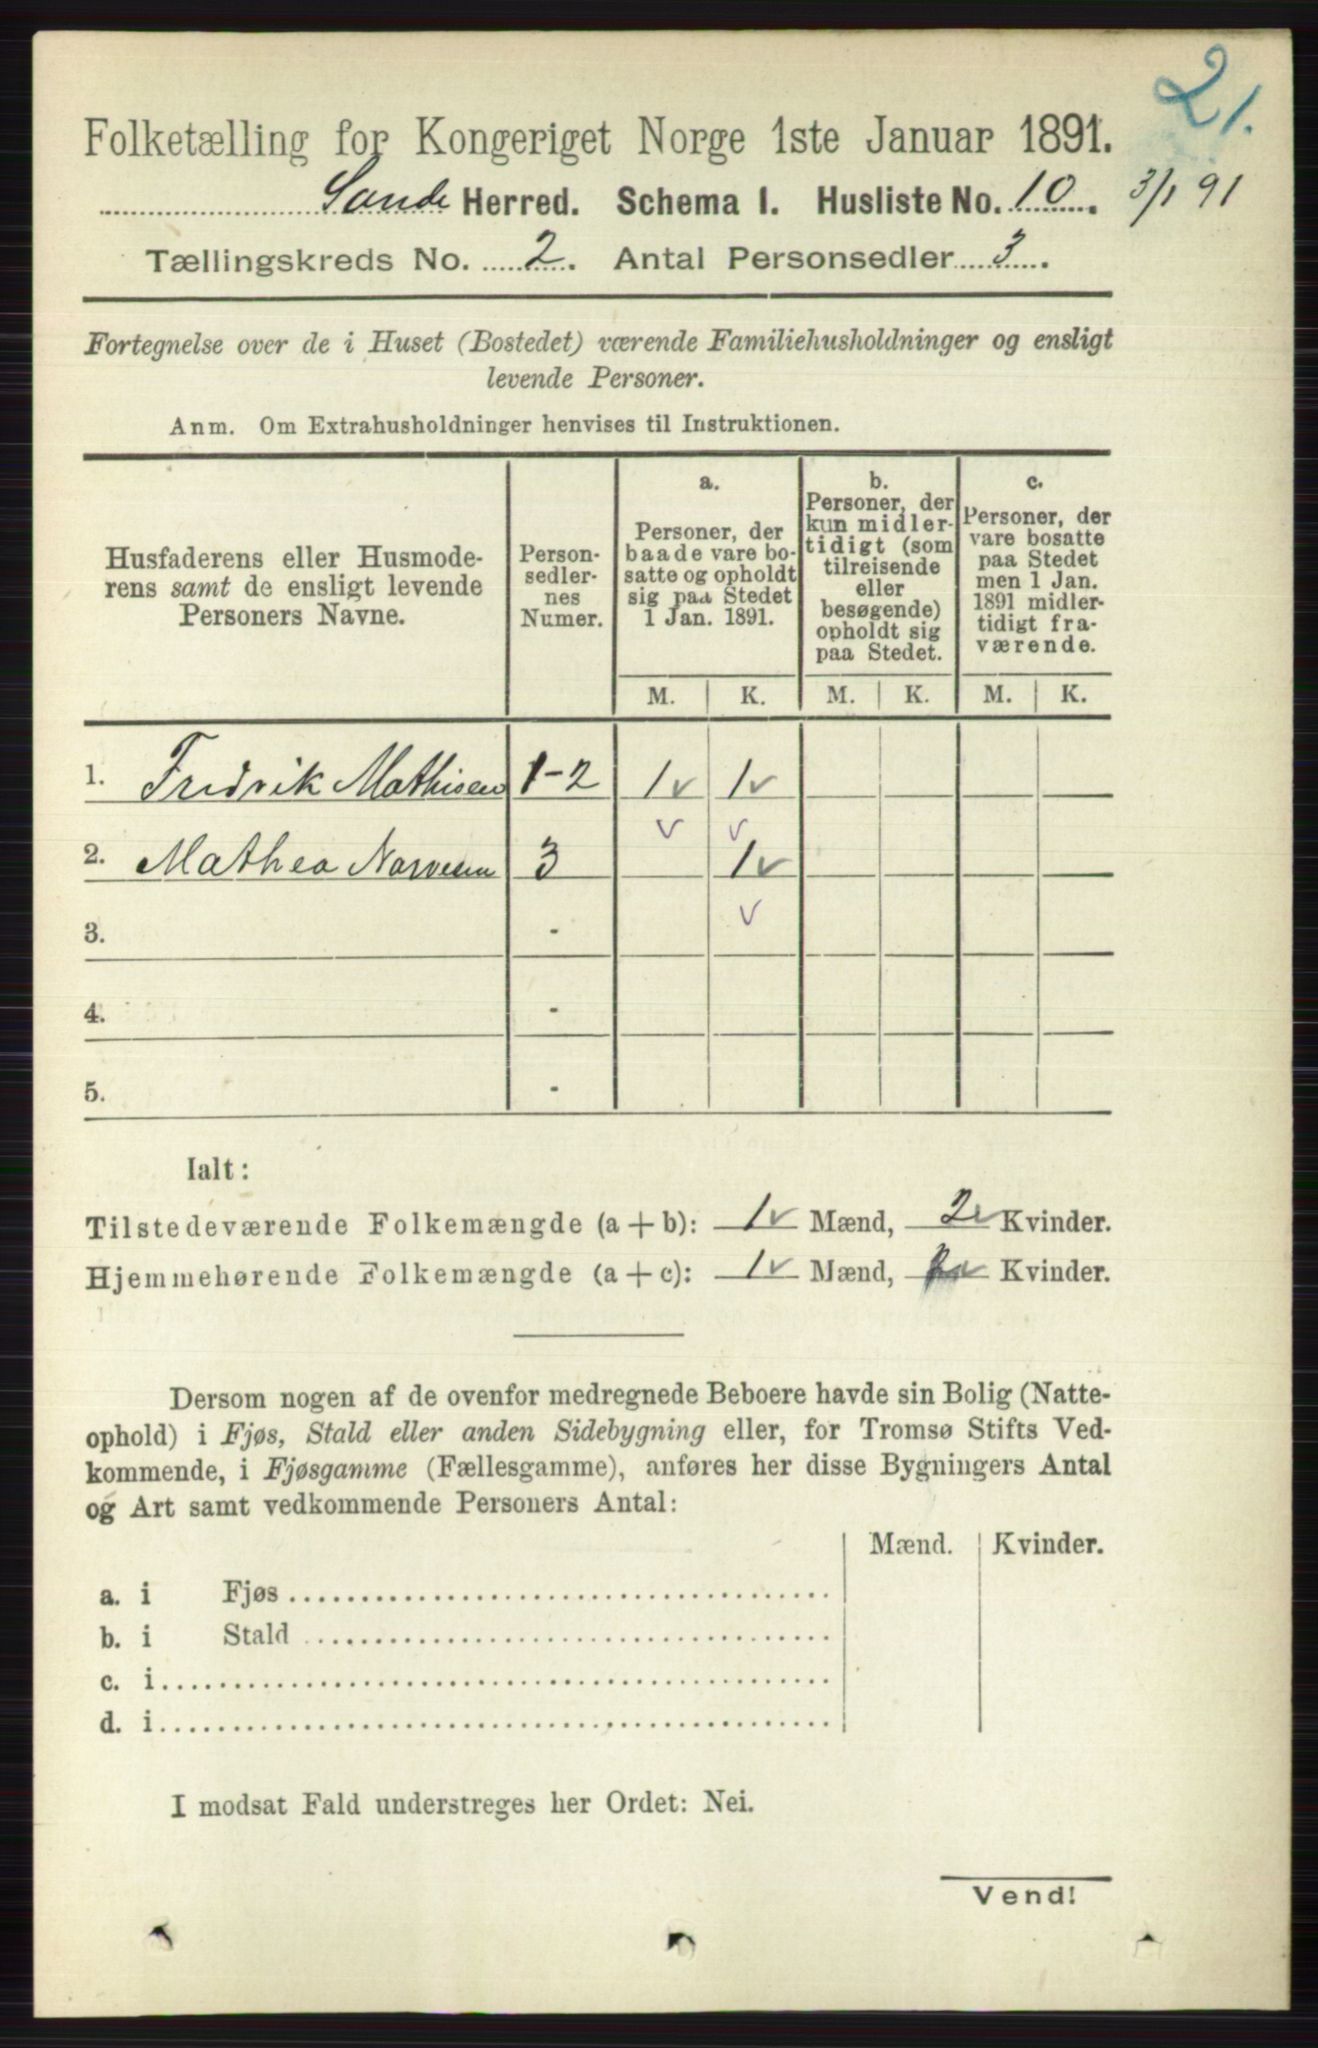 21.
Folketælling for Kongeriget Norge 1ste Januar 1891.
Sande Herred. Schema 1. Husliste No. 10. 3/1 91
Tællingskreds No. 2. Antal Personsedler 3.
Fortegnelse over de i Huset (Bostedet) værende Familiehusholdninger og ensligt
levende Personer.
Anm. Om Extrahusholdninger henvises til Instruktionen.
Husfaderens eller Husmode-
rens samt de ensligt levende
Personers Navne.
Person-
sedler-
nes
Numer.
a.
Personer, der
baade vare bo-
satte og opholdt
sig paa Stedet
1 Jan. 1891.
b.
Personer, der
kun midler-
tidigt (som
tilreisende
eller
besøgende)
opholdt sig
paa Stedet.
c.
Personer, der
vare bosatte
paa Stedet
men 1 Jan.
1891 midler-
tidigt fra-
værende.
M. K. M. K. M. K.
1. Fredrik Mathisen 1-2 1v 1v
v v
2. Mathea Narvesen 3 1v
v
3. -
4. -
5. -
Ialt:
Tilstedeværende Folkemængde (a + b): 1v Mænd, 2v Kvinder.
Hjemmehørende Folkemængde (a + c): 1v Mænd, 2v Kvinder.
Dersom nogen af de ovenfor medregnede Beboere havde sin Bolig (Natte-
ophold) i Fjøs, Stald eller anden Sidebygning eller, for Tromsø Stifts Ved-
kommende, i Fjøsgamme (Fællesgamme), anføres her disse Bygningers Antal
og Art samt vedkommende Personers Antal:
Mænd. Kvinder.
a. i Fjøs
b. i Stald
c. i
d. i
I modsat Fald understreges her Ordet: Nei.
Vend!